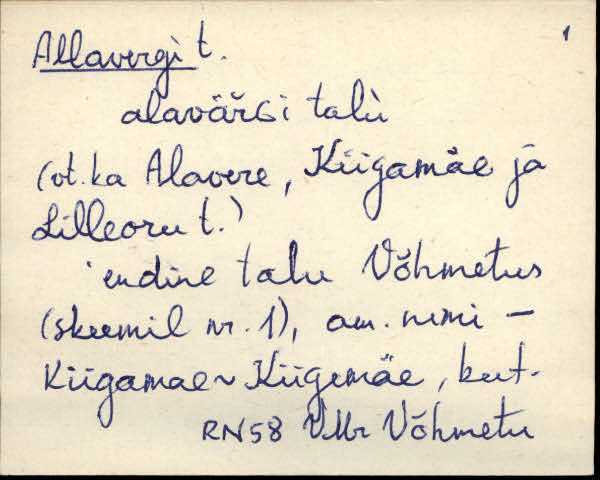 1
Allavergi t.
alavärGi talù
(vt. ka Alavere, Kiigamäe ja
Lilleoru t.)
endine talu Võhmetus
(skeemil nr. 1), am. nimi –
Kiigamäe ~ Kiigemäe, kut-
RN58 VMr Võhmetu